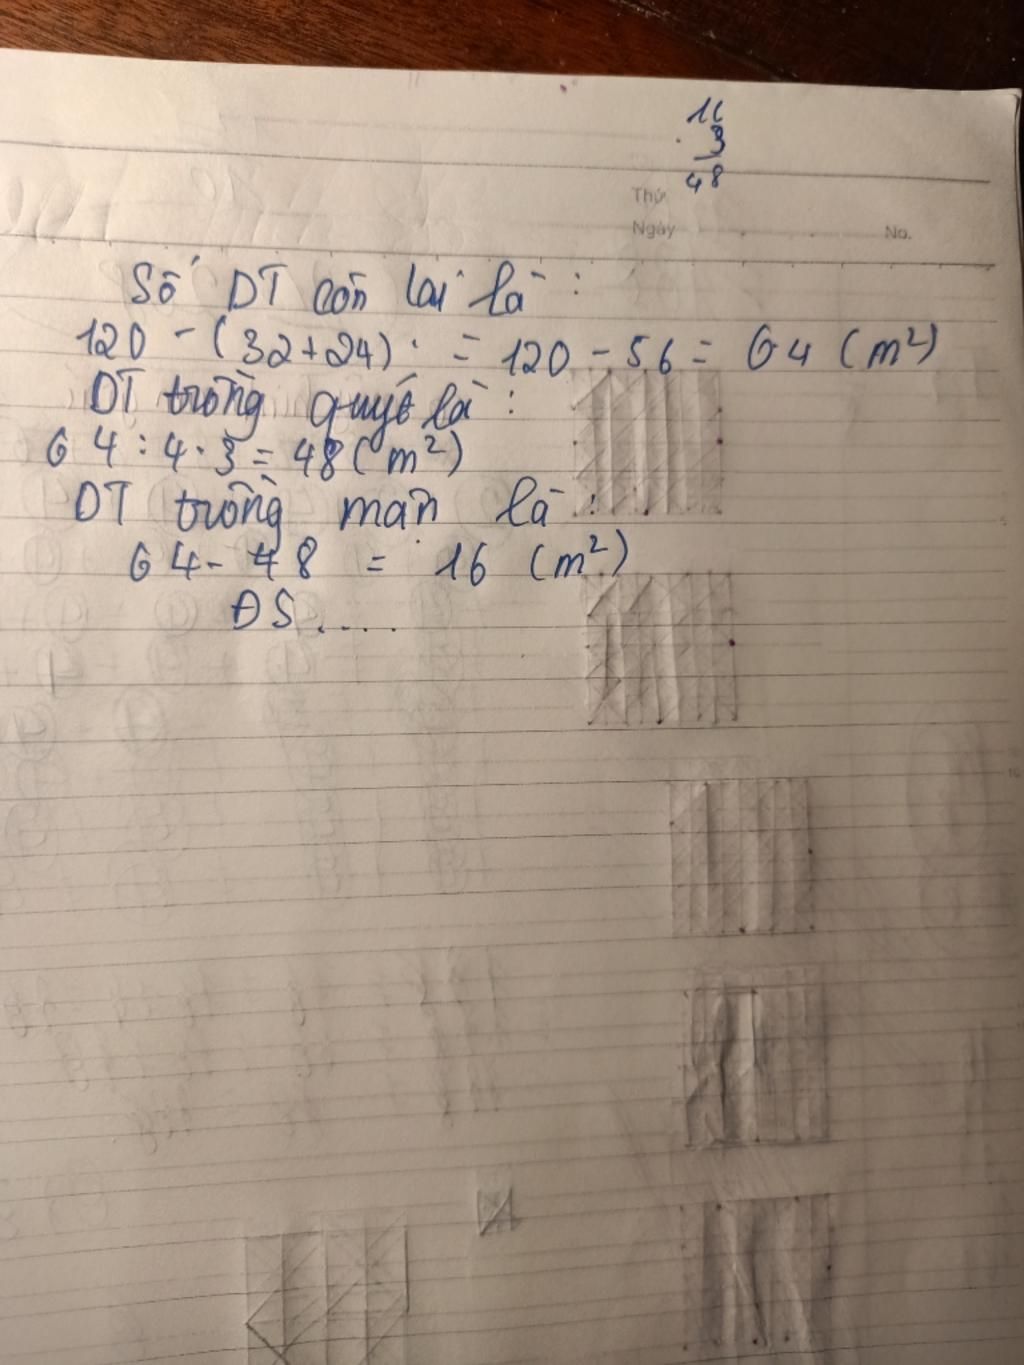 16
3
48
Thứ
Ngày
No.
Số DT còn lại là :
120 - (32+24) = 120 - 56 = 64 (m²)
DT trồng quýt là :
64 : 4 · 3 = 48 (m²)
DT trồng mận là :
64 - 48 = 16 (m²)
ĐS....